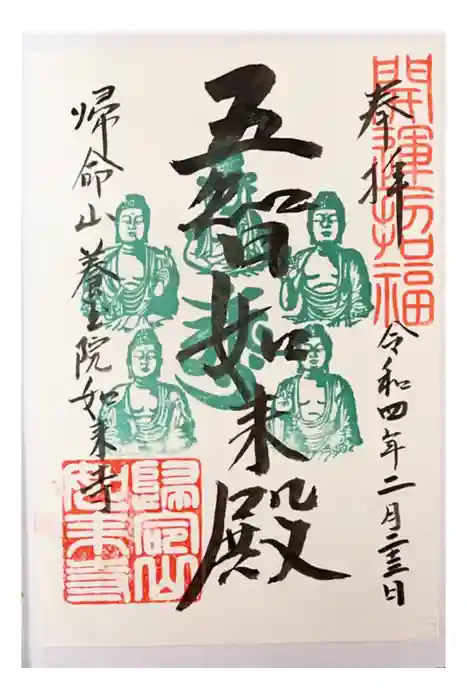 開運招福
奉拝
令和四年二月二十三日
五智如来殿
帰命山養玉院如来寺
帰命山
如来寺